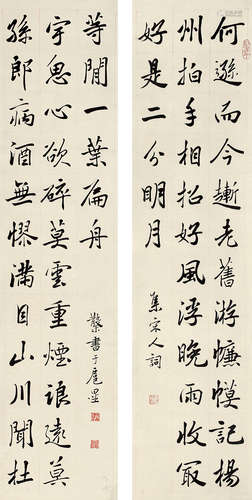 何遜而今漸老舊游㡘幙記楊
州拍手相招好風浮晚雨收冣
好是二分明月
集宋人詞
孫郎病酒無憀滿目山川聞杜
宇愁心欲碎莫雲重煙浪遠莫
等閒一葉扁舟
書于扈